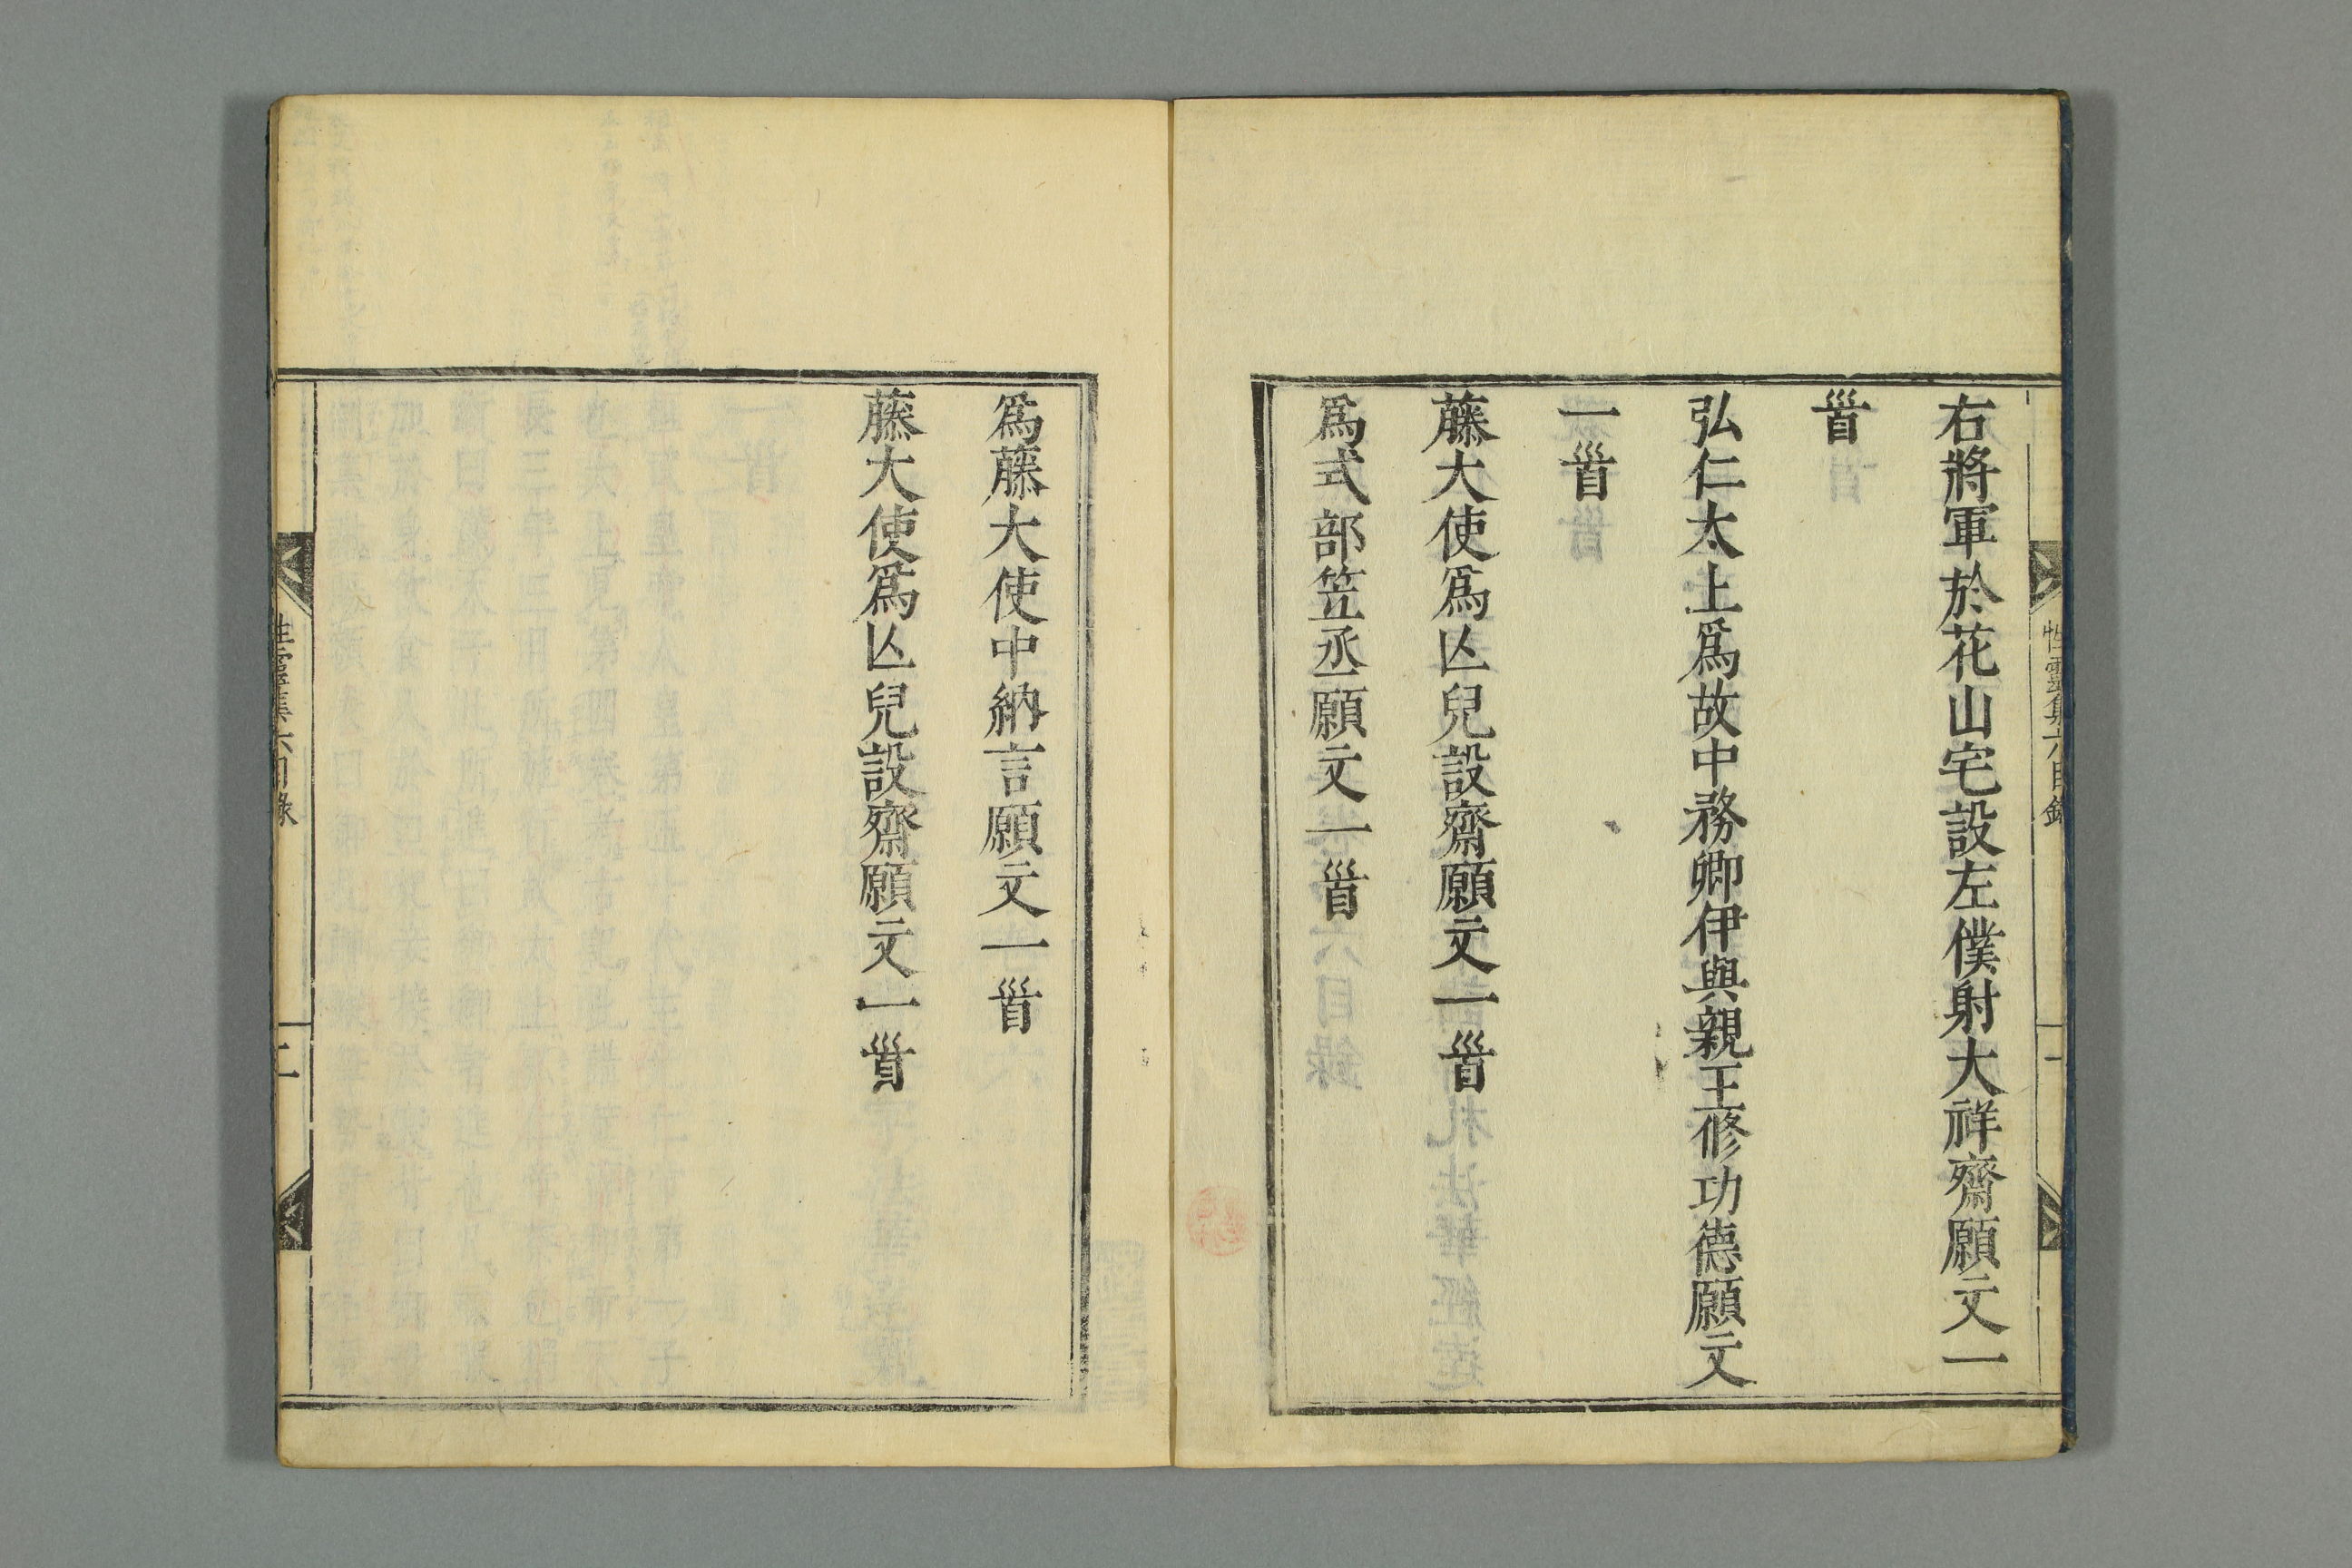 右將軍於花山宅設左僕射大祥齋願文一
𩠐
弘仁太上爲故中務卿伊與親王修功德願文
一𩠐
藤大使爲亾兒設齋願文一𩠐
爲式部笠丞願文一𩠐
性靈集六目錄
一
爲藤大使中納言願文一𩠐
藤大使爲亾兒設齋願文一𩠐
性靈集六目錄
二